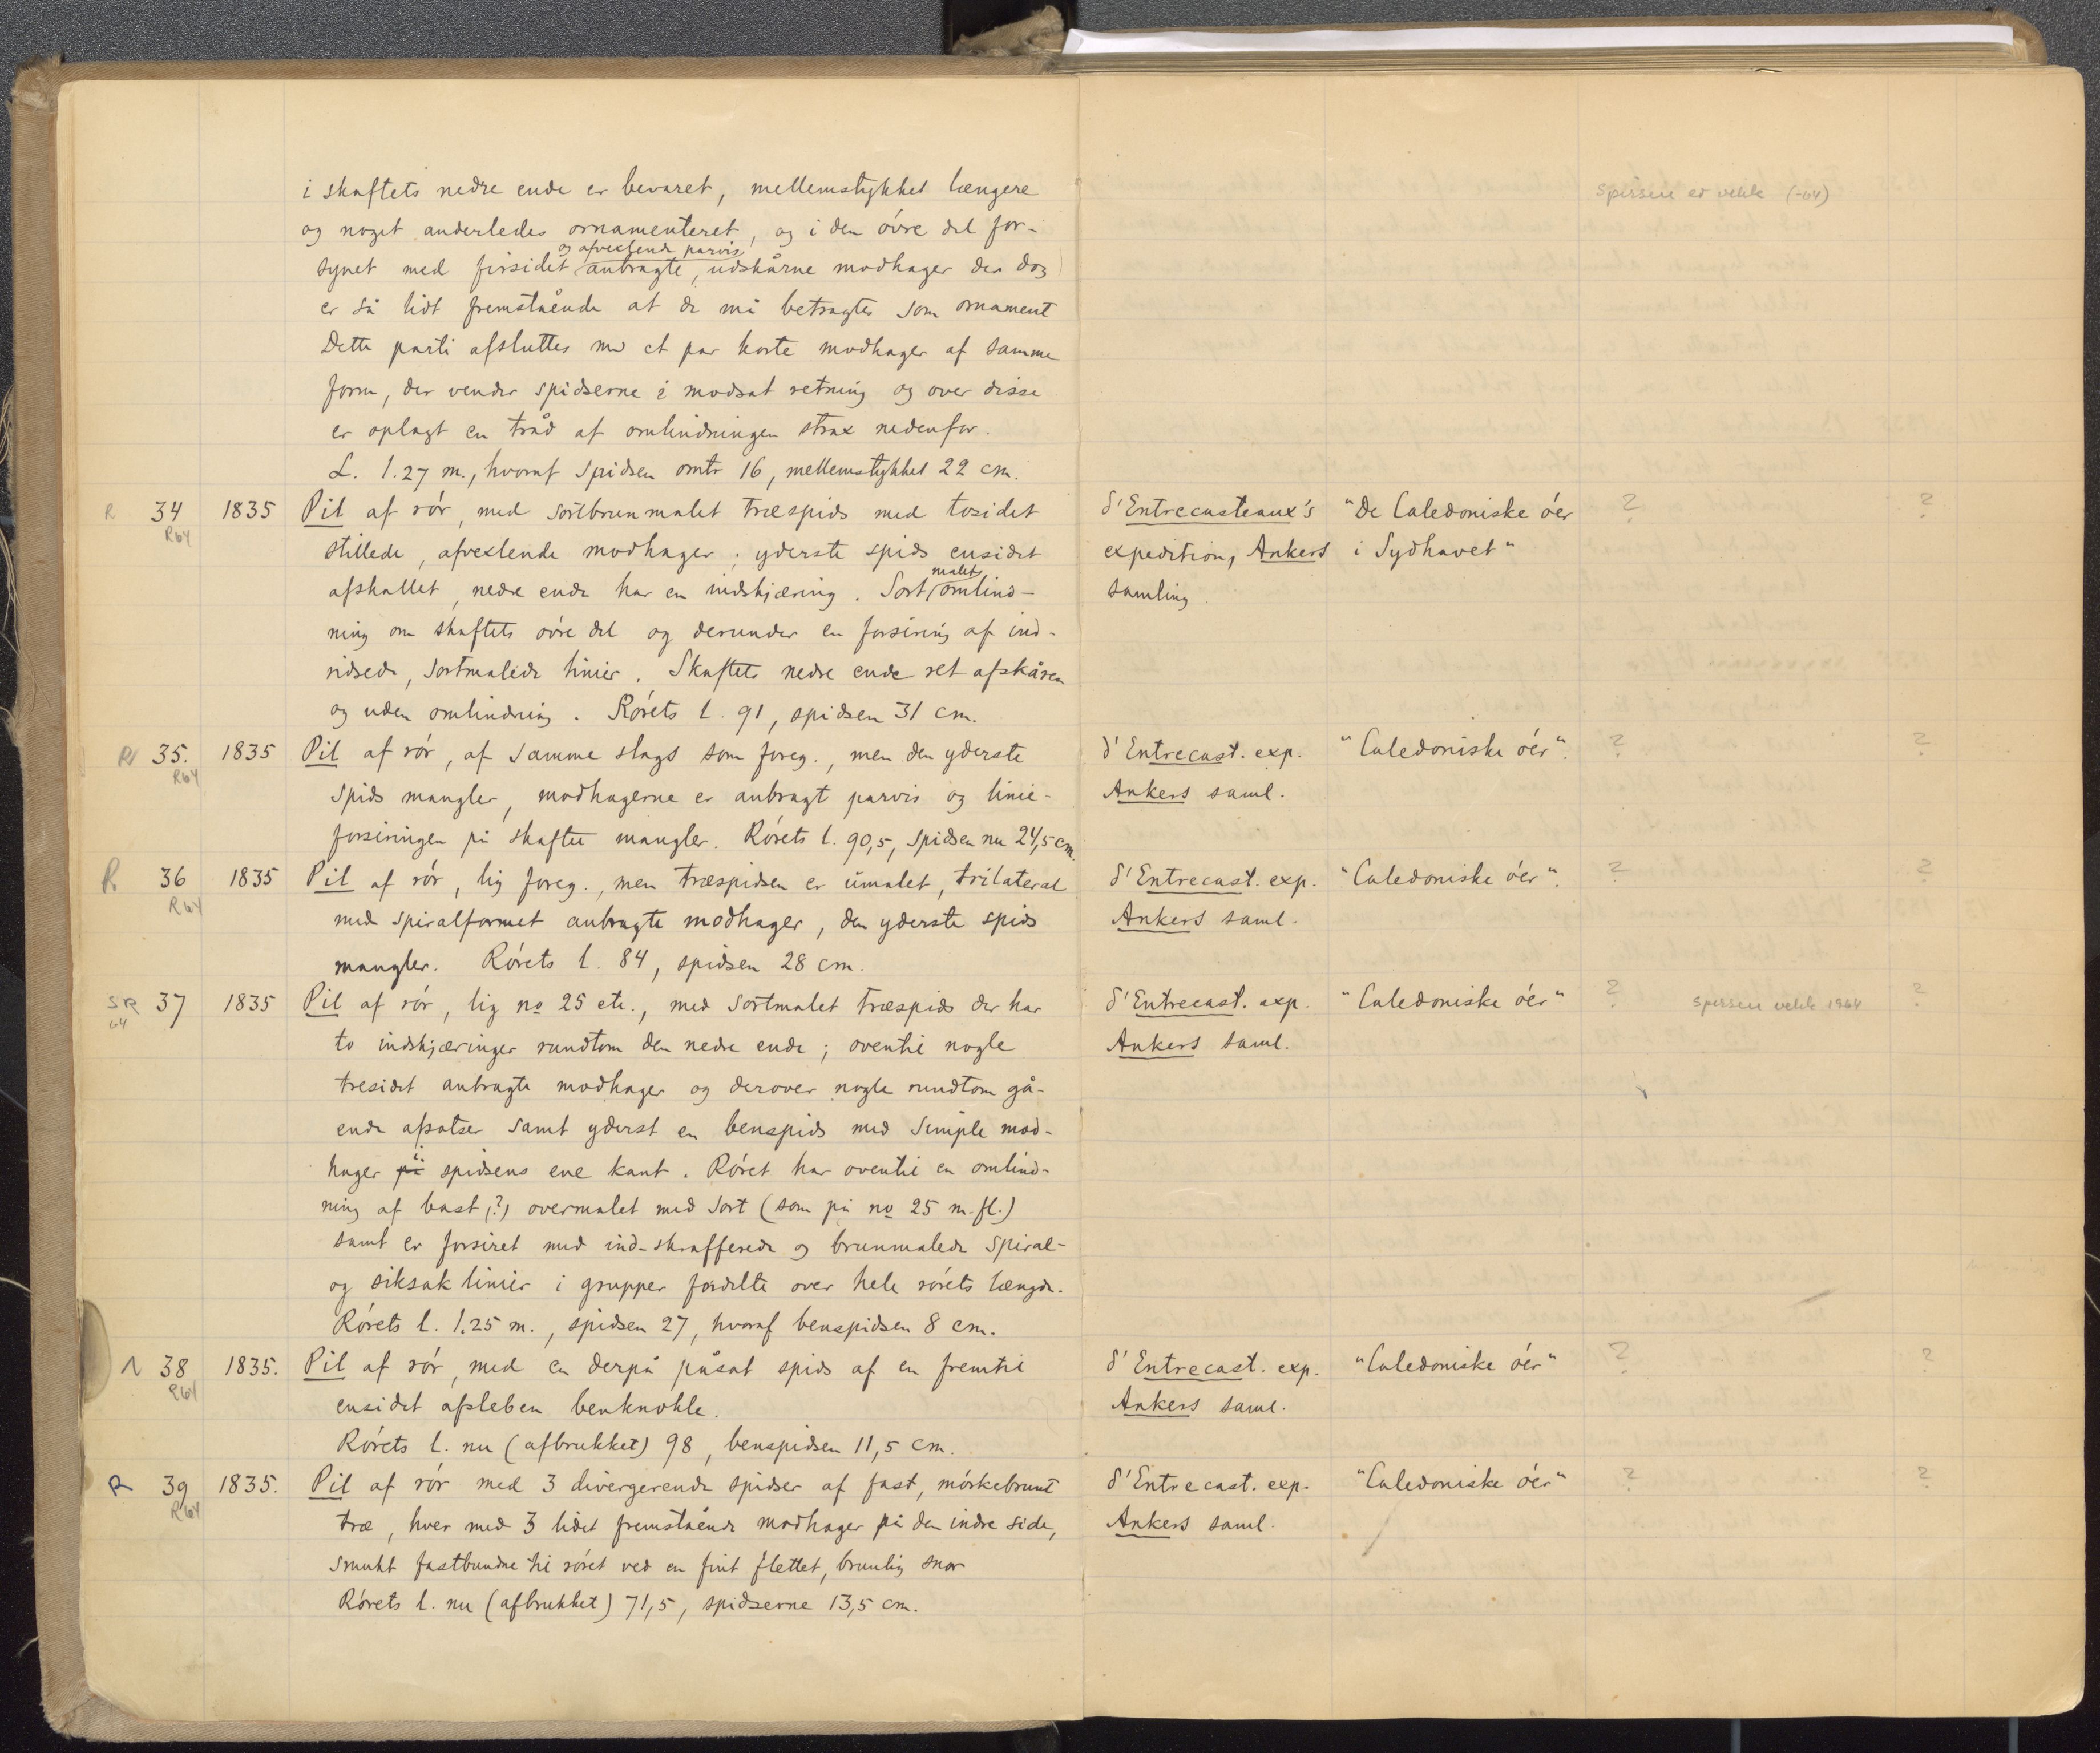 i skaftets nedre ende er bevaret, mellemstykket længere
spissen er vekk (-64)
og noget anderledes ornamenteret, og i den óvre del for-
og afvexlende parvis
synet med firsidet anbragte, udskårne modhager der dog
er så lidt fremstående at de må betragtes som ornament
Dette parti afsluttes med et par korte modhager af samme
form, der vender spidserne i modsat retning og over disse
er oplagt en tråd af omlindningen strax nedenfor.
L. 1.27 m., hvoraf spidsen omtr 16, mellemstykket 22 cm.
R 34 1835 Pil af rór, med sortbrunmalet træspids med tosidet d'Entrecasteaux's "De Caledoniske óer ? ?
R64 stillede, afvexlende modhager; yderste spids ensidet expedition, Ankers i Sydhavet"
malet
afskallet, nedre ende har en indskjæring. Sort omlind- samling
ning om skaftets óvre del og derunder en forsiring af ind-
ridsede, sortmalede linier. Skaftets nedre ende ret afskåren
og uden omlindning. Rórets l. 91, spidsen 31 cm.
R 35. 1835 Pil af rór, af samme slags som foreg., men den yderste d'Entrecast. exp. "Caledoniske óer". ? ?
R64 spids mangler, modhagerne er anbragt parvis og linie- Ankers saml.
forsiringen på skaftet mangler. Rórets l. 90,5, spidsen nu 24,5 cm.
R 36 1835 Pil af rór, lig foreg., men træspidsen er umalet, trilateral d'Entrecast. exp. "Caledoniske óer". ? ?
R64 med spiralformet anbragte modhager, den yderste spids Ankers saml.
mangler. Rórets l. 84, spidsen 28 cm.
SR 37 1835 Pil af rór, lig no 25 etc., med sortmalet træspids der har d'Entrecast. exp. "Caledoniske óer" ? spissen vekk 1964 ?
64 to indskjæringer rundtom den nedre ende; oventil nogle Ankers saml.
tresidet anbragte modhager og derover nogle rundtom gå-
ende afsatser samt yderst en benspids med simple mod-
i
hager på spidsens ene kant. Róret har oventil en omlind-
ning af bast (?) overmalet med sort (som på no 25 m.fl.)
samt er forsiret med ind-skrafferede og brunmalede spiral-
og siksak linier i grupper fordelte over hele rórets længde.
Rórets l. 1.25 m., spidsen 27, hvoraf benspidsen 8 cm.
38 1835. Pil af rór, med en derpå påsat spids af en fremtil d'Entrecast. exp. "Caledoniske óer" ? ?
R64 ensidet afsleben benknokle. Ankers saml.
Rórets l. nu (afbrukket) 98, benspidsen 11,5 cm.
R 39 1835. Pil af rór med 3 divergerende spidser af fast, mórkebrunt d'Entrecast. exp. "Caledoniske óer" ? ?
R64 træ, hver med 3 lidet fremstående modhager på den indre side, Ankers saml.
smukt fastbundne til róret ved en fint flettet, brunlig snor
Rórets l. nu (afbrukket) 71,5, spidserne 13,5 cm.